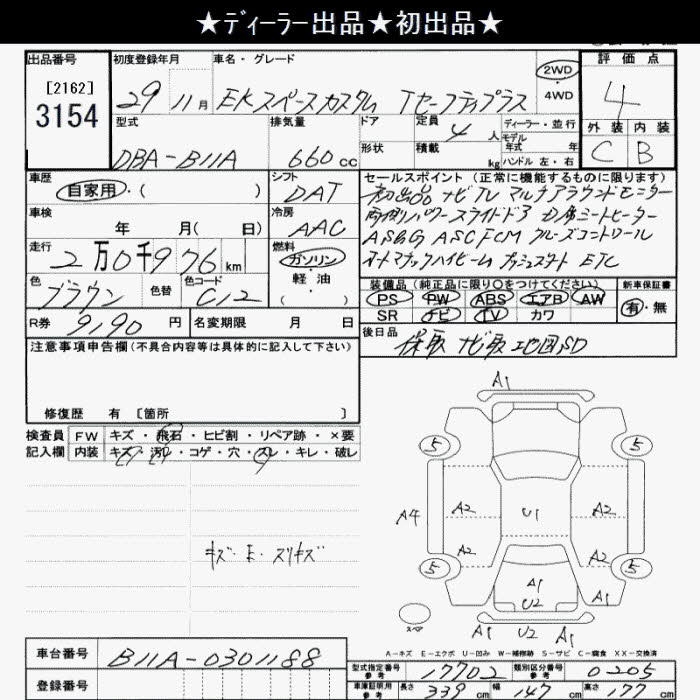 ★ディーラー出品★初出品★
出品番号 初度登録年月 車名・グレード 評価点
[2162]
3154
29 11月 EKスペースカスタム Tセーフティプラス 2WD ・ 4WD 4
型式 排気量 ドア 定員 4人 ディーラー・並行
モデル 年式 年 外装 内装
DBA-B11A 660cc 形状 積載 kg ハンドル 左・右 C B
車歴 シフト セールスポイント (正常に機能するものに限ります)
自家用・( ) DAT 初出品 ナビTV マルチアラウンドモニター
車検 冷房 両側パワースライドドア D席シートヒーター
年 月( 日) AAC ASBG ASC FCM クルーズコントロール
走行 燃料 オートマチックハイビーム プッシュスタート ETC
2万0千976km ガソリン・軽油
色 色替 色コード ( ) 装備品(純正品に限り〇をつけてください) 新車保証書
ブラウン C12 PS PW ABS エアB AW 有・無
SR ナビ TV カワ
R券 9190円 名変期限 月 日 後日品
保取 ナビ取 エロ図SD
注意事項申告欄(不具合内容等は具体的に記入して下さい)
修復歴 有 [箇所 ]
検査員 FW キズ・飛石・ヒビ割・リペア跡・×要
記入欄 内装 キズ・汚レ・コゲ・穴・スレ・キレ・破レ
キズ・E・スリキズ
A1
5 5
A4 A2 U1 A2
A2 A2
5 A1 5
U2 A1
スペア A1 U2 A1
A-キズ E-エクボ U-凹み W-補修跡 S-サビ C-腐食 XX-交換済
車台番号 B11A-0301188
型式指定番号 参考 17702 類別区分番号 参考 0205
登録番号 車庫証明用 参考 長さ 339cm 幅 147cm 高さ 177cm